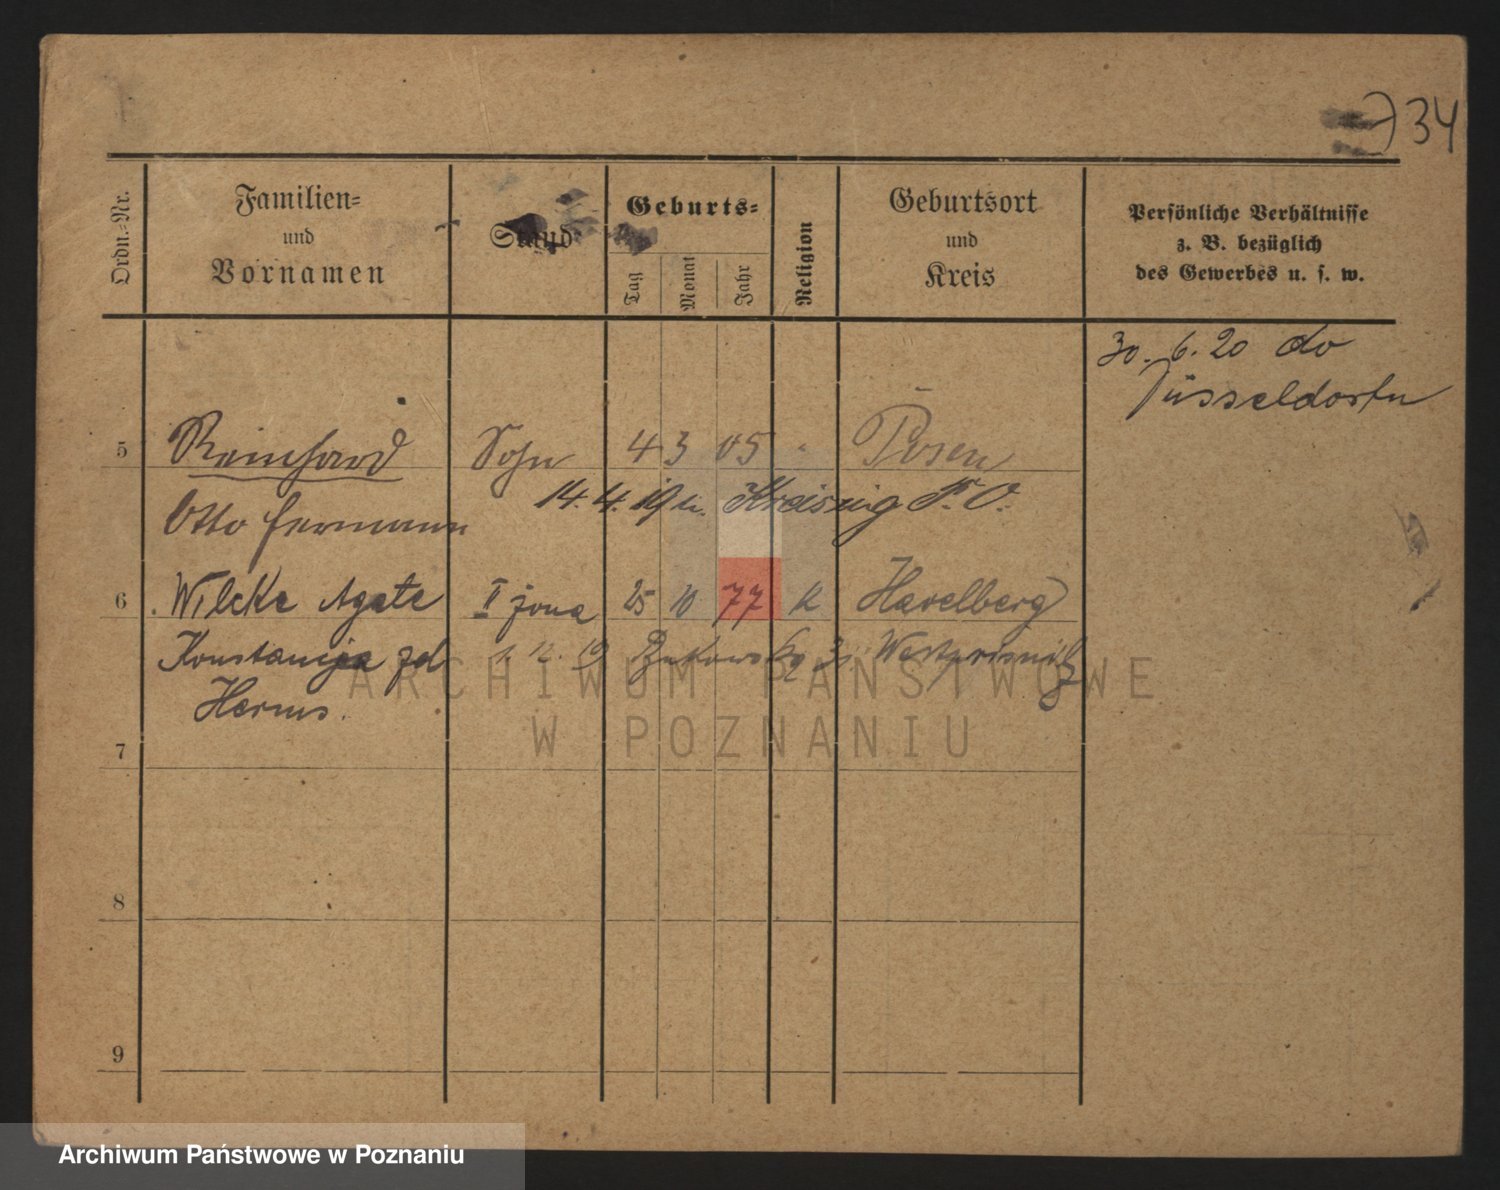 34
Ordn.-Nr.
Familien-
und
Vornamen
Stand
Geburts-
Tag
Monat
Jahr
Religion
Geburtsort
und
Kreis
Persönliche Verhältnisse
z. B. bezüglich
des Gewerbes u. s. w.
30. 6. 20 do
Düsseldorfu
5 Reinhard Sohn 4 3 05 " Posen
14. 4. 19 n.
Otto Hermann
6 Wilcke Agate II żona 25 10 77 k Havelberg
Konstancja zd 1. 12. 19 Bukowska 31 Westprignitz
Herms.
7
8
9
ARCHIWUM PAŃSTWOWE
W POZNANIU
Archiwum Państwowe w Poznaniu